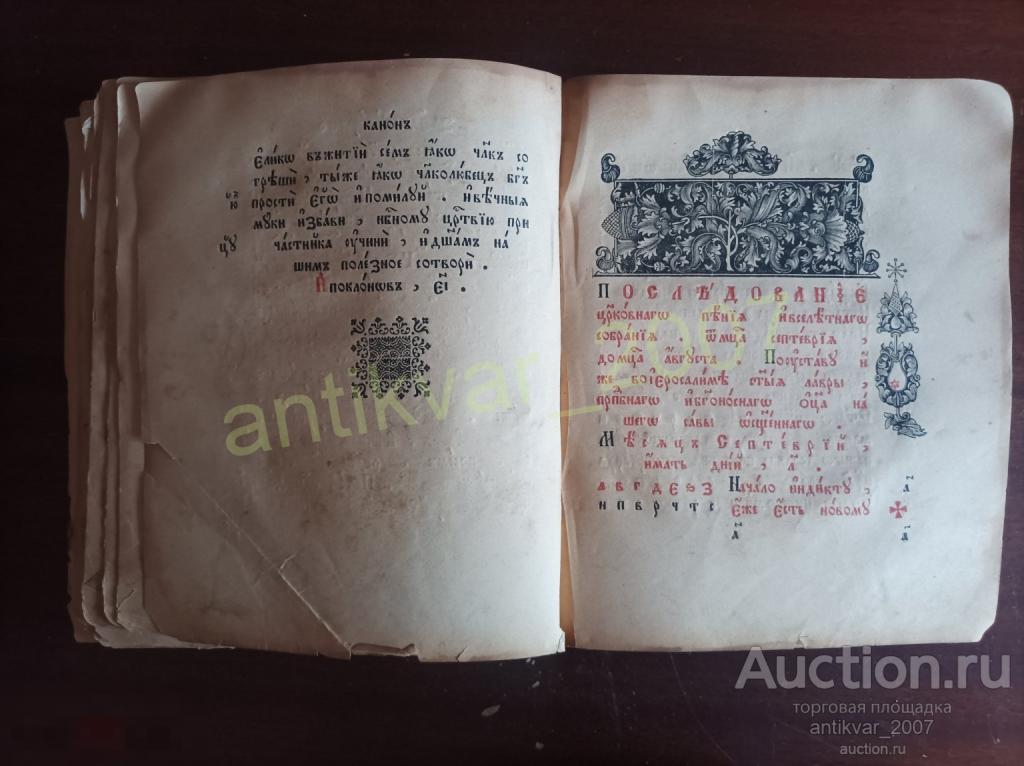 кано́нъ
Є҆ли́кѡ въжитїи̑ се́мъ ꙗ҆́кѡ чл҃къ со
грѣши̑ , ты́же ꙗ҆́кѡ чл҃колю́бецъ бг҃ъ
прости̑ є҆го̀ и҆поми́лꙋй . и҆вѣ́чныѧ
мꙋ́ки и҆зба́ви , нбⷭ҇номꙋ црⷭ҇твїю при
ча́стника ᲂу҆чинѝ , и҆дш҃а́мъ на́
шимъ поле́зное сотворѝ .
А҆поклѡ́нѡвъ , є҃і .
ПОСЛѢДОВАНЇЕ
црⷪ҇ко́внагѡ пѣ́нїѧ и҆вселѣ́тнагѡ
собра́нїѧ . ѿмцⷭ҇а септе́врїѧ ,
домцⷭ҇а а҆́вгꙋста . Поᲂуста́вꙋ и҆́
же воі҆ерꙋсали́мѣ ст҃ы́ѧ ла́вры ,
прпⷣбнагѡ и҆бг҃оно́снагѡ ѻ҆ц҃а̀ на́
шегѡ са́вы ѡ҆сщ҃е́ннагѡ .
Мѣ́сѧцъ Септе́врїй ,
и҆́мать дні́й , л҃ .
а в г д е ѕ з Нача́ло и҆нди́ктꙋ ,
н п в р ч т с є҆́же є҆́сть но́вомꙋ
antikvar_2007
Auction.ru
торговая площадка
antikvar_2007
auction.ru